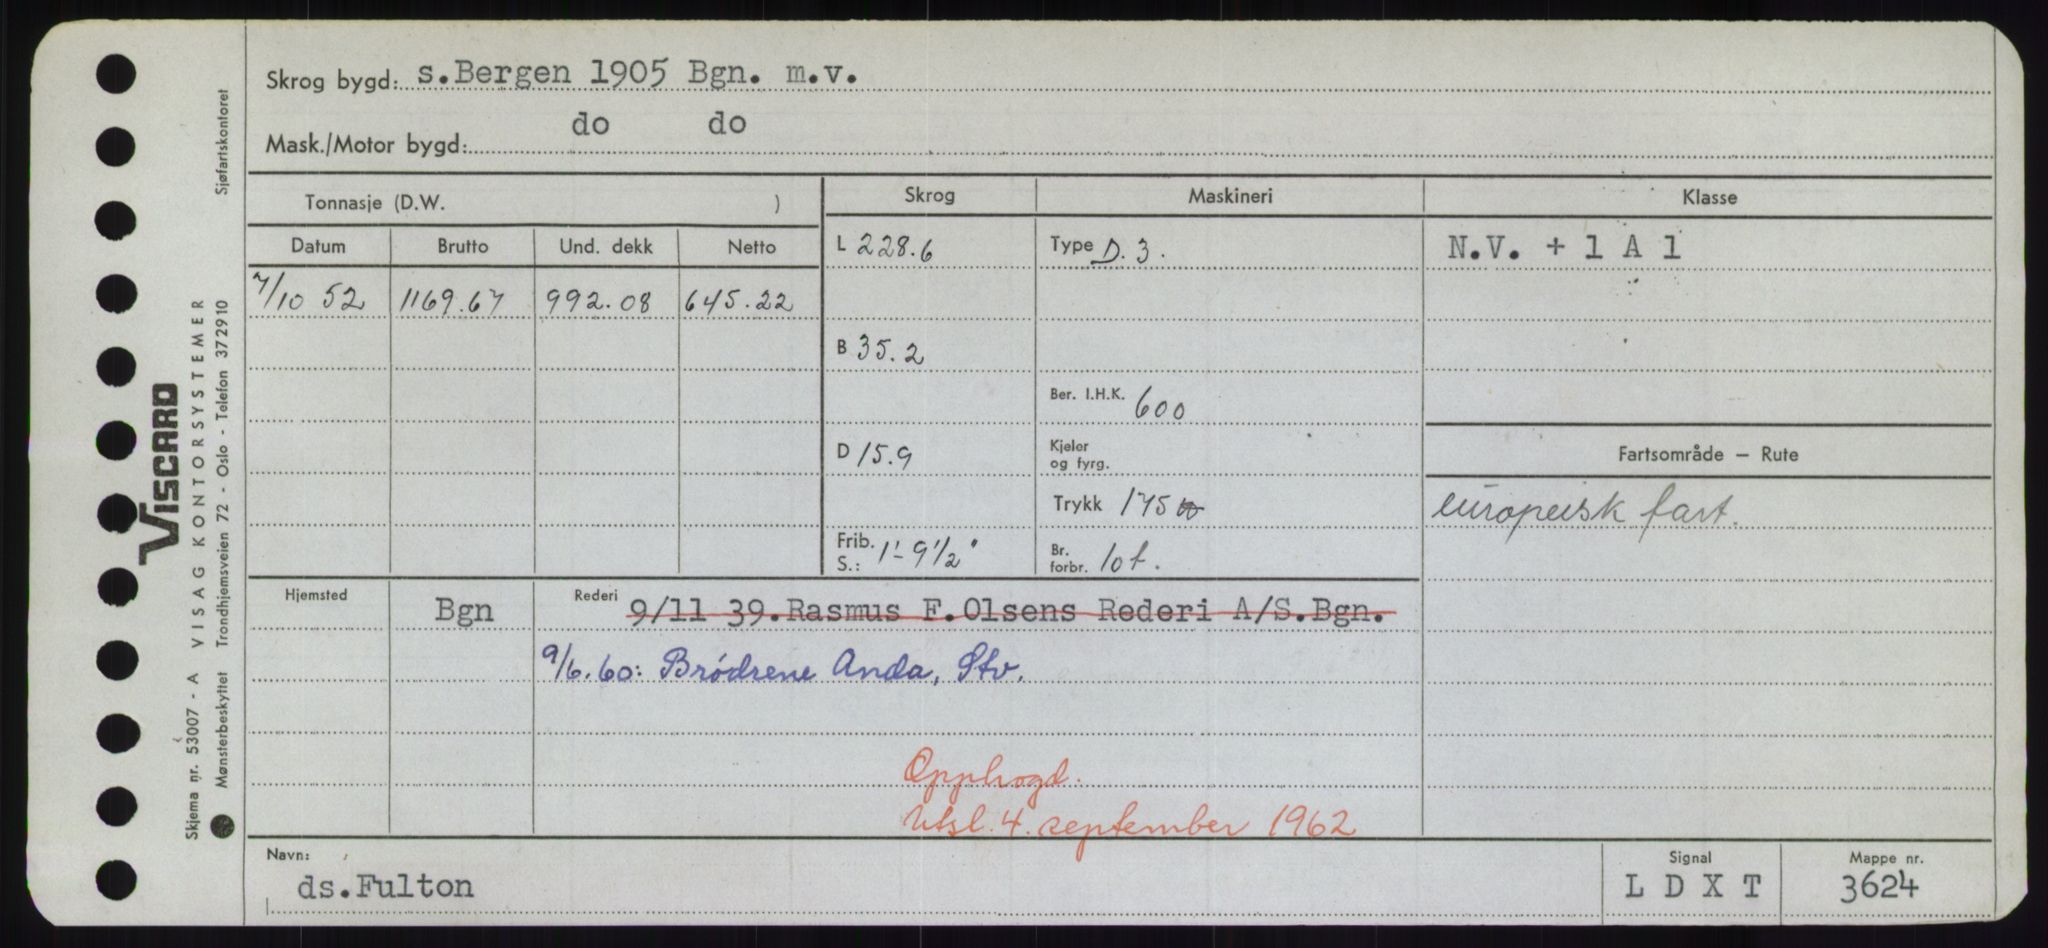 Skrog bygd: s.Bergen 1905 Bgn. m.v.
Mask./Motor bygd: do do
Tonnasje (D.W. )
Skrog
Maskineri
Klasse
Datum Brutto Und. dekk Netto
7/10 52 1169.67 992.08 645.22
L 228.6
B 35.2
D 15.9
Frib. S.: 1'-9 1/2"
Type D. 3.
Ber. I.H.K. 600
Kjeler og fyrg.
Trykk 175
Br. forbr. 10 t.
N.V. + 1 A 1
Fartsområde – Rute
europeisk fart.
Hjemsted Bgn
Rederi 9/11 39.Rasmus F.Olsens Rederi A/S.Bgn.
9/6.60: Brødrene Anda, Stv.
Opphogd.
Utsl. 4. september 1962
Navn: ds.Fulton
Signal LDXT
Mappe nr. 3624
VISCARD
Skjema nr. 53007 - A VISAG KONTORSYSTEMER
Mønsterbeskyttet Trondhjemsveien 72 - Oslo - Telefon 372910
Sjøfartskontoret